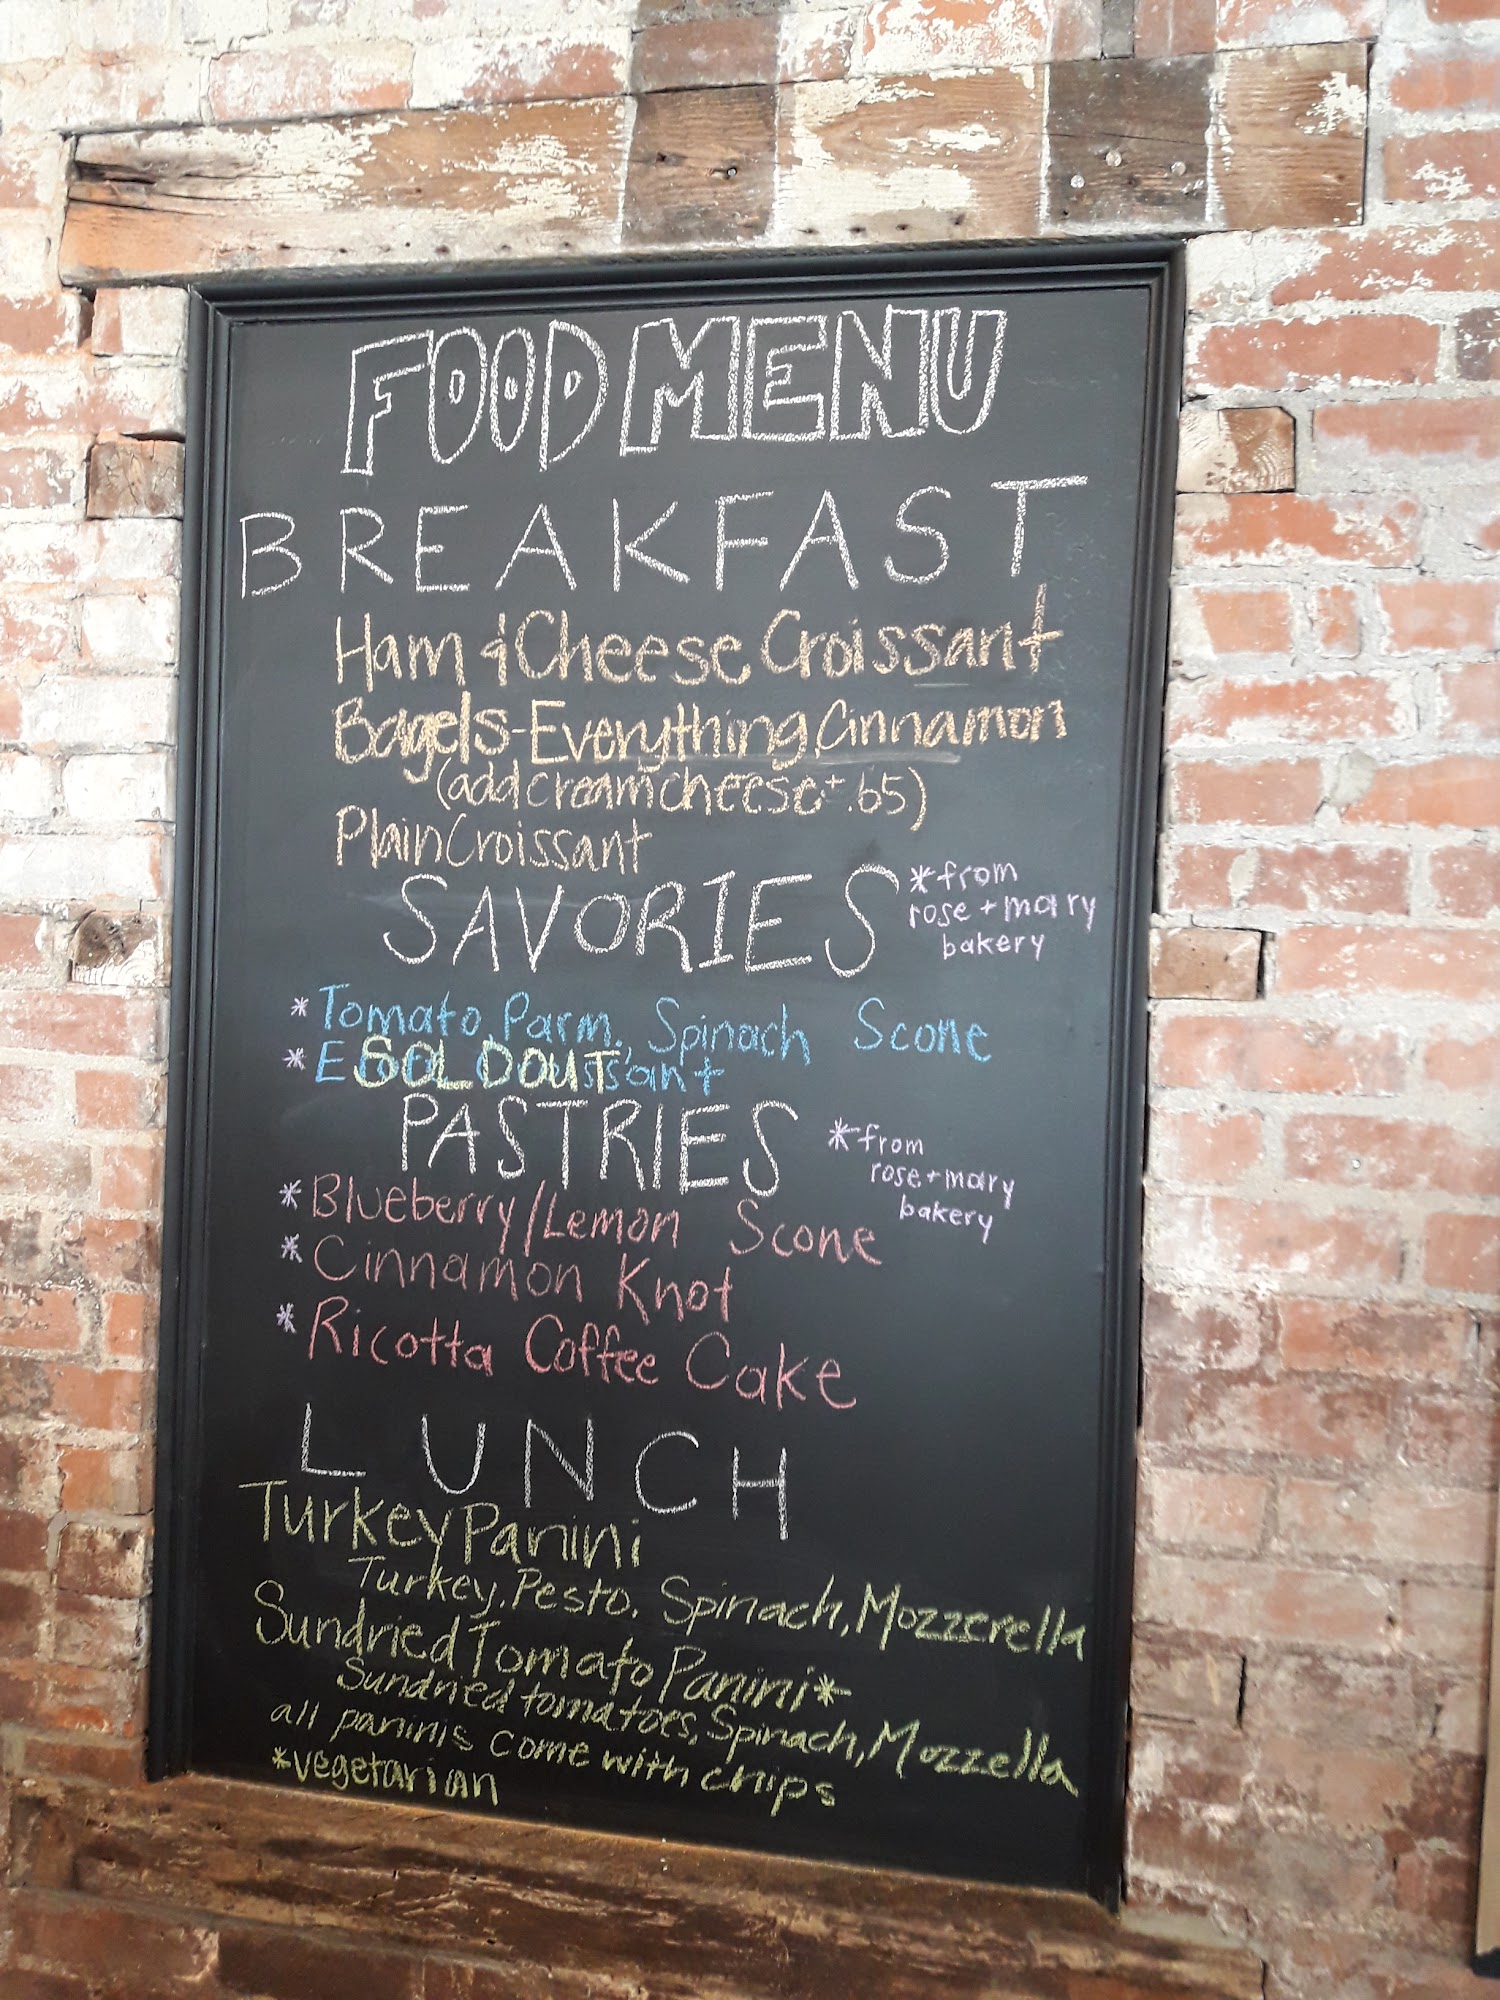 FOOD MENU
BREAKFAST
Ham & Cheese Croissant
Bagels - Everything, Cinnamon
(add cream cheese + .65)
Plain Croissant
SAVORIES
*from
rose + mary
bakery
* Tomato, Parm., Spinach Scone
* SOLD OUT
PASTRIES
*from
rose + mary
bakery
* Blueberry/Lemon Scone
* Cinnamon Knot
* Ricotta Coffee Cake
LUNCH
Turkey Panini
Turkey, Pesto, Spinach, Mozzerella
Sundried Tomato Panini*
Sundried tomatoes, Spinach, Mozzella
all paninis come with chips
*vegetarian